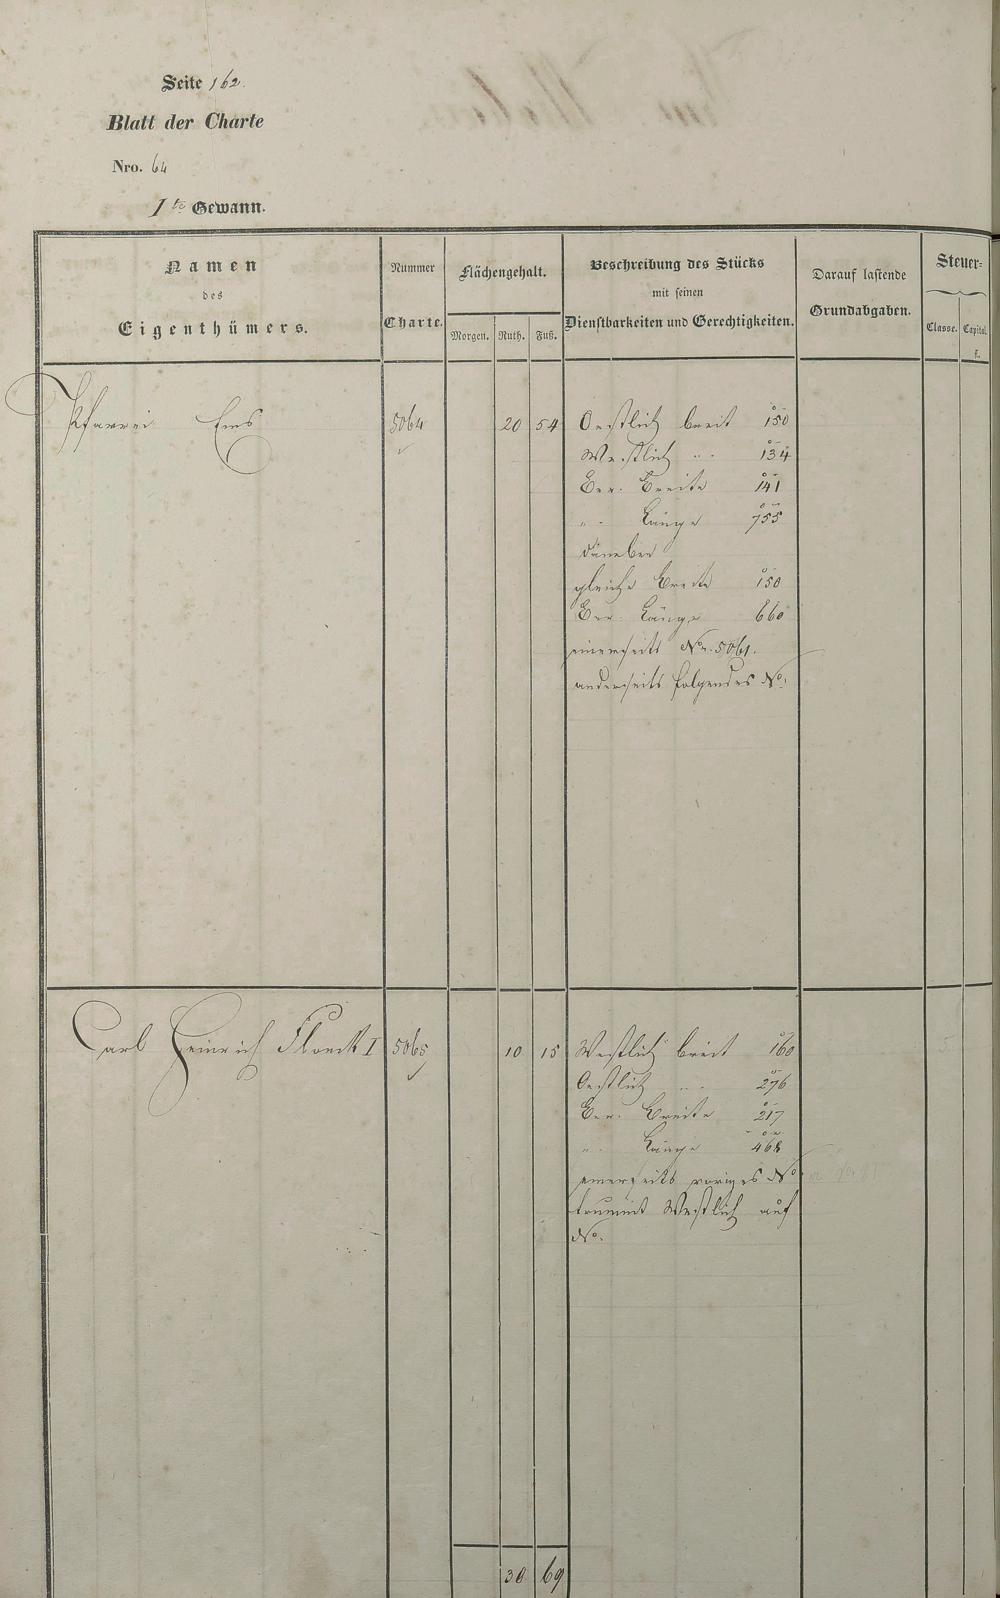 Seite 162.
Blatt der Charte
Nro. 64
1te Gewann.
Namen
des
Eigenthümers.
Nummer
Charte.
Flächengehalt.
Morgen. Ruth. Fuß.
Beschreibung des Stücks
mit seinen
Dienstbarkeiten und Gerechtigkeiten.
Darauf lastende
Grundabgaben.
Steuer-
Classe. Capital.
f.
Pfarrei Ems 5064 20 54 Oestlich breit 150
Westlich " " 134
Ber. Breite 141
" " Länge 755
daneben
gleiche Breite 150
Ber. Länge 660
einerseits No. 5061.
anderseits folgendes No.
Carl Heinrich Flöck I 5065 10 15 Westlich breit 160
Oestlich " " 276
Ber. Breite 217
" " Länge 468
einerseits voriges No
Westlich auf
No.
30 69